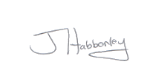 J Habbonley